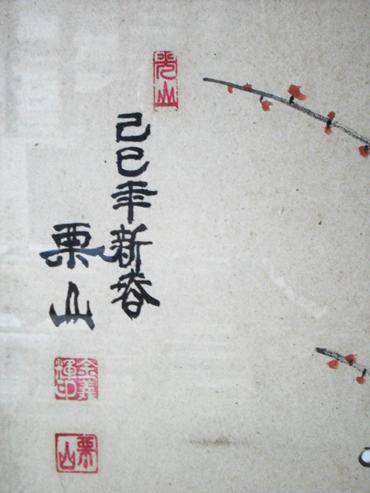 己巳年新春
栗山
栗山